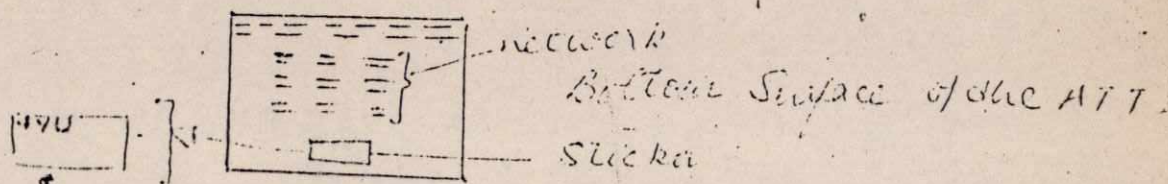 network
Bottom Surface of the ATT.
Sticka